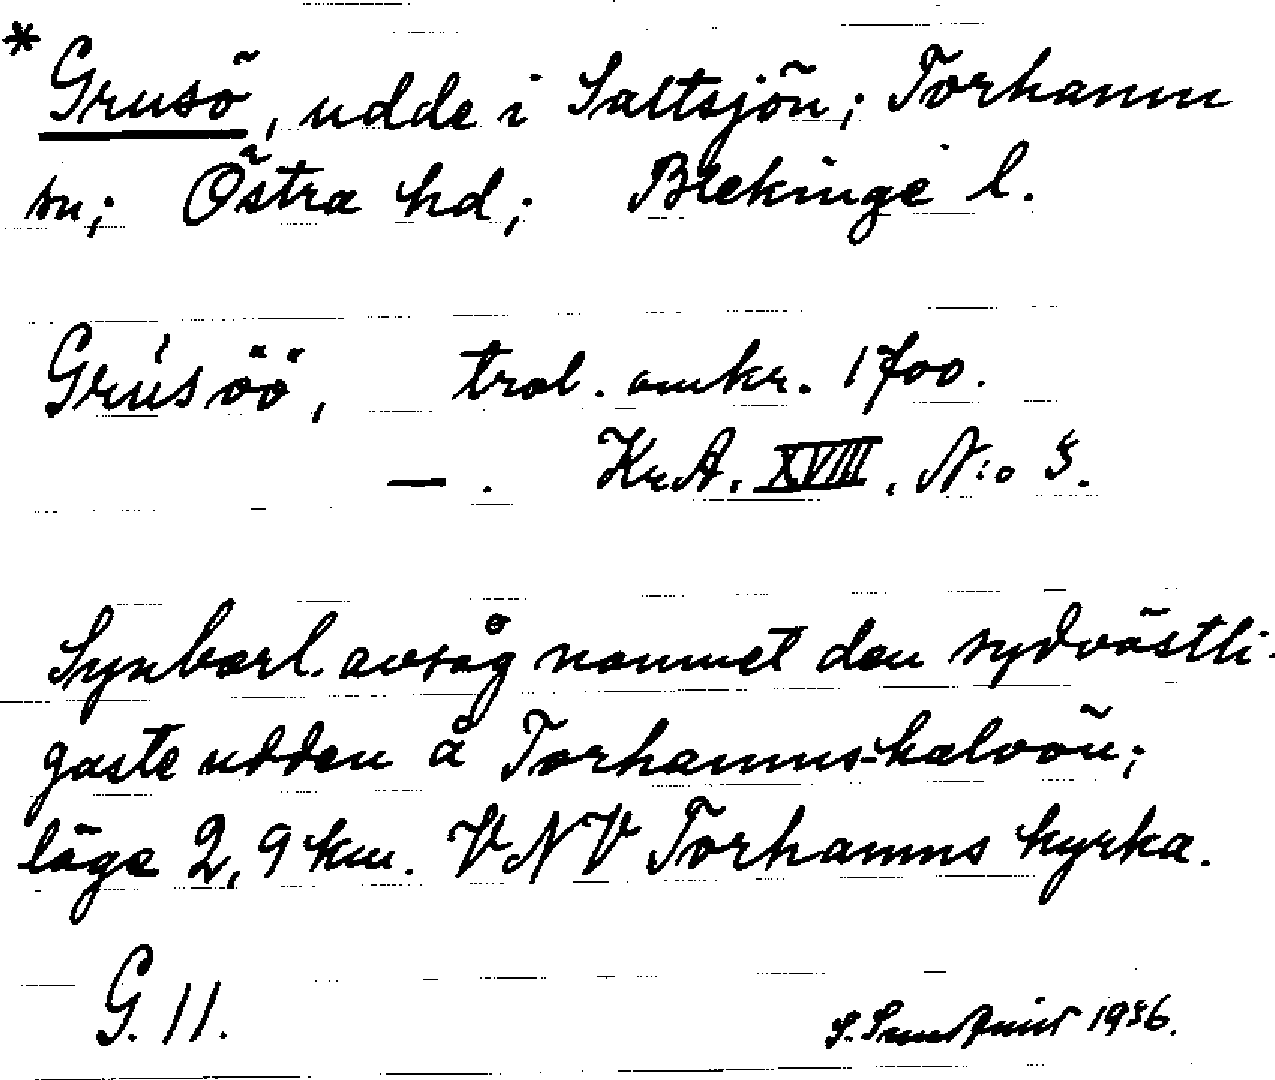 * Grusö, udde i Saltsjön; Torhamn
sn; Östra hd; Blekinge l.
Grusöö, trol. omkr. 1700.
— . Kr.A. XVIII. N:o 3.
Synbarl. avsåg namnet den sydvästli-
gaste udden å Torhamns-halvön;
läge 2,9 km. VNV Torhamns kyrka.
G. 11.
S. 1936.